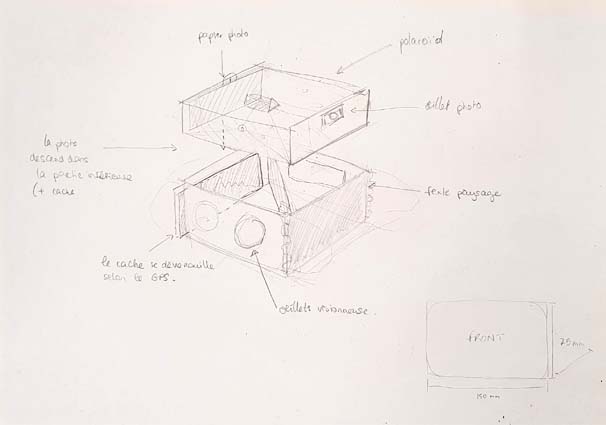 papier photo
polaroïd
œillet photo
la photo
descend dans
la partie inférieure
(+ cache
fente paysage
le cache se déverrouille
selon le GPS.
œillets visionneuse.
FRONT
75mm
150 mm